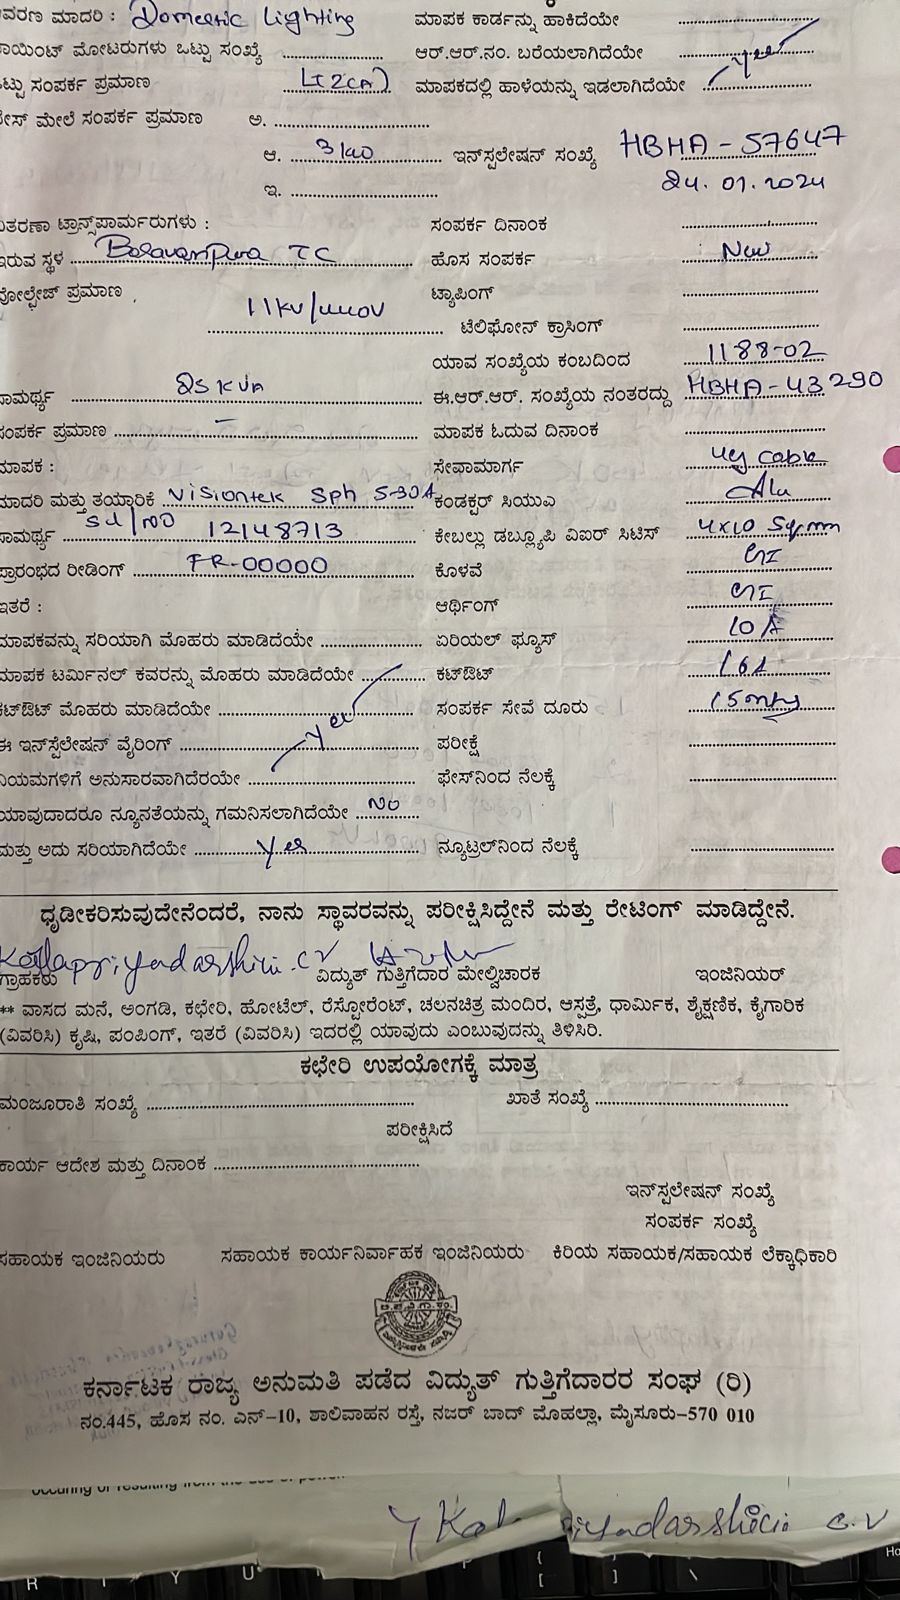 ವರಣ ಮಾದರಿ : Domestic Lighting ಮಾಪಕ ಕಾರ್ಡನ್ನು ಹಾಕಿದೆಯೇ
ಾಯಿಂಟ್ ಮೋಟರುಗಳು ಒಟ್ಟು ಸಂಖ್ಯೆ ಆರ್.ಆರ್.ನಂ. ಬರೆಯಲಾಗಿದೆಯೇ
ಟ್ಟು ಸಂಪರ್ಕ ಪ್ರಮಾಣ LT2(A) ಮಾಪಕದಲ್ಲಿ ಹಾಳೆಯನ್ನು ಇಡಲಾಗಿದೆಯೇ yes
ೇಸ್ ಮೇಲೆ ಸಂಪರ್ಕ ಪ್ರಮಾಣ ಅ.
ಆ. 3kw ಇನ್‌ಸ್ಟಲೇಷನ್ ಸಂಖ್ಯೆ HBHA-57647
ಇ. 24.01.2024
ಿತರಣಾ ಟ್ರಾನ್ಸ್‌ಪಾರ್ಮರುಗಳು : ಸಂಪರ್ಕ ದಿನಾಂಕ
ಇರುವ ಸ್ಥಳ TC ಹೊಸ ಸಂಪರ್ಕ New
ವೋಲ್ಟೇಜ್ ಪ್ರಮಾಣ 11KV/440V ಟ್ಯಾಪಿಂಗ್
ಟೆಲಿಫೋನ್ ಕ್ರಾಸಿಂಗ್
ಯಾವ ಸಂಖ್ಯೆಯ ಕಂಬದಿಂದ 1188-02
ಾಮರ್ಥ್ಯ 25 KVA ಈ.ಆರ್.ಆರ್. ಸಂಖ್ಯೆಯ ನಂತರದ್ದು HBHA-43290
ಸಂಪರ್ಕ ಪ್ರಮಾಣ – ಮಾಪಕ ಓದುವ ದಿನಾಂಕ
ಮಾಪಕ : ಸೇವಾಮಾರ್ಗ ug cable
ಮಾದರಿ ಮತ್ತು ತಯಾರಿಕೆ Visiontek Sph 5-30A ಕಂಡಕ್ಟರ್ ಸಿಯುಎ Alu
ಾಮರ್ಥ್ಯ 12148713 ಕೇಬಲ್ಲು ಡಬ್ಲ್ಯೂಪಿ ವಿಐರ್ ಸಿಟಿಸ್ 4x10 Sq.mm
ಪ್ರಾರಂಭದ ರೀಡಿಂಗ್ FR-00000 ಕೊಳವೆ GI
ಇತರೆ : ಆರ್ಥಿಂಗ್ GI
ಮಾಪಕವನ್ನು ಸರಿಯಾಗಿ ಮೊಹರು ಮಾಡಿದೆಯೇ ಏರಿಯಲ್ ಫ್ಯೂಸ್ 10A
ಮಾಪಕ ಟರ್ಮಿನಲ್ ಕವರನ್ನು ಮೊಹರು ಮಾಡಿದೆಯೇ ಕಟ್‌ಔಟ್ 16A
ಕಟ್‌ಔಟ್ ಮೊಹರು ಮಾಡಿದೆಯೇ yes ಸಂಪರ್ಕ ಸೇವೆ ದೂರು 15mtrs
ಈ ಇನ್‌ಸ್ಟೆಲೇಷನ್ ವೈರಿಂಗ್ ಪರೀಕ್ಷೆ
ನಿಯಮಗಳಿಗೆ ಅನುಸಾರವಾಗಿದೆರಯೇ ಫೇಸ್‌ನಿಂದ ನೆಲಕ್ಕೆ
ಯಾವುದಾದರೂ ನ್ಯೂನತೆಯನ್ನು ಗಮನಿಸಲಾಗಿದೆಯೇ NO
ಮತ್ತು ಅದು ಸರಿಯಾಗಿದೆಯೇ yes ನ್ಯೂಟ್ರಲ್‌ನಿಂದ ನೆಲಕ್ಕೆ
ಧೃಡೀಕರಿಸುವುದೇನೆಂದರೆ, ನಾನು ಸ್ಥಾವರವನ್ನು ಪರೀಕ್ಷಿಸಿದ್ದೇನೆ ಮತ್ತು ರೇಟಿಂಗ್ ಮಾಡಿದ್ದೇನೆ.
ಗ್ರಾಹಕರು ವಿದ್ಯುತ್ ಗುತ್ತಿಗೆದಾರ ಮೇಲ್ವಿಚಾರಕ ಇಂಜಿನಿಯರ್
** ವಾಸದ ಮನೆ, ಅಂಗಡಿ, ಕಛೇರಿ, ಹೋಟೆಲ್, ರೆಸ್ಟೋರೆಂಟ್, ಚಲನಚಿತ್ರ ಮಂದಿರ, ಆಸ್ಪತ್ರೆ, ಧಾರ್ಮಿಕ, ಶೈಕ್ಷಣಿಕ, ಕೈಗಾರಿಕ
(ವಿವರಿಸಿ) ಕೃಷಿ, ಪಂಪಿಂಗ್, ಇತರೆ (ವಿವರಿಸಿ) ಇದರಲ್ಲಿ ಯಾವುದು ಎಂಬುವುದನ್ನು ತಿಳಿಸಿರಿ.
ಕಛೇರಿ ಉಪಯೋಗಕ್ಕೆ ಮಾತ್ರ
ಮಂಜೂರಾತಿ ಸಂಖ್ಯೆ ಖಾತೆ ಸಂಖ್ಯೆ
ಪರೀಕ್ಷಿಸಿದೆ
ಕಾರ್ಯ ಆದೇಶ ಮತ್ತು ದಿನಾಂಕ
ಇನ್‌ಸ್ಟಲೇಷನ್ ಸಂಖ್ಯೆ
ಸಂಪರ್ಕ ಸಂಖ್ಯೆ
ಸಹಾಯಕ ಇಂಜಿನಿಯರು ಸಹಾಯಕ ಕಾರ್ಯನಿರ್ವಾಹಕ ಇಂಜಿನಿಯರು ಕಿರಿಯ ಸಹಾಯಕ/ಸಹಾಯಕ ಲೆಕ್ಕಾಧಿಕಾರಿ
ಕರ್ನಾಟಕ ರಾಜ್ಯ ಅನುಮತಿ ಪಡೆದ ವಿದ್ಯುತ್ ಗುತ್ತಿಗೆದಾರರ ಸಂಘ (ರಿ)
ನಂ.445, ಹೊಸ ನಂ. ಎನ್-10, ಶಾಲಿವಾಹನ ರಸ್ತೆ, ನಜರ್ ಬಾದ್ ಮೊಹಲ್ಲಾ, ಮೈಸೂರು-570 010